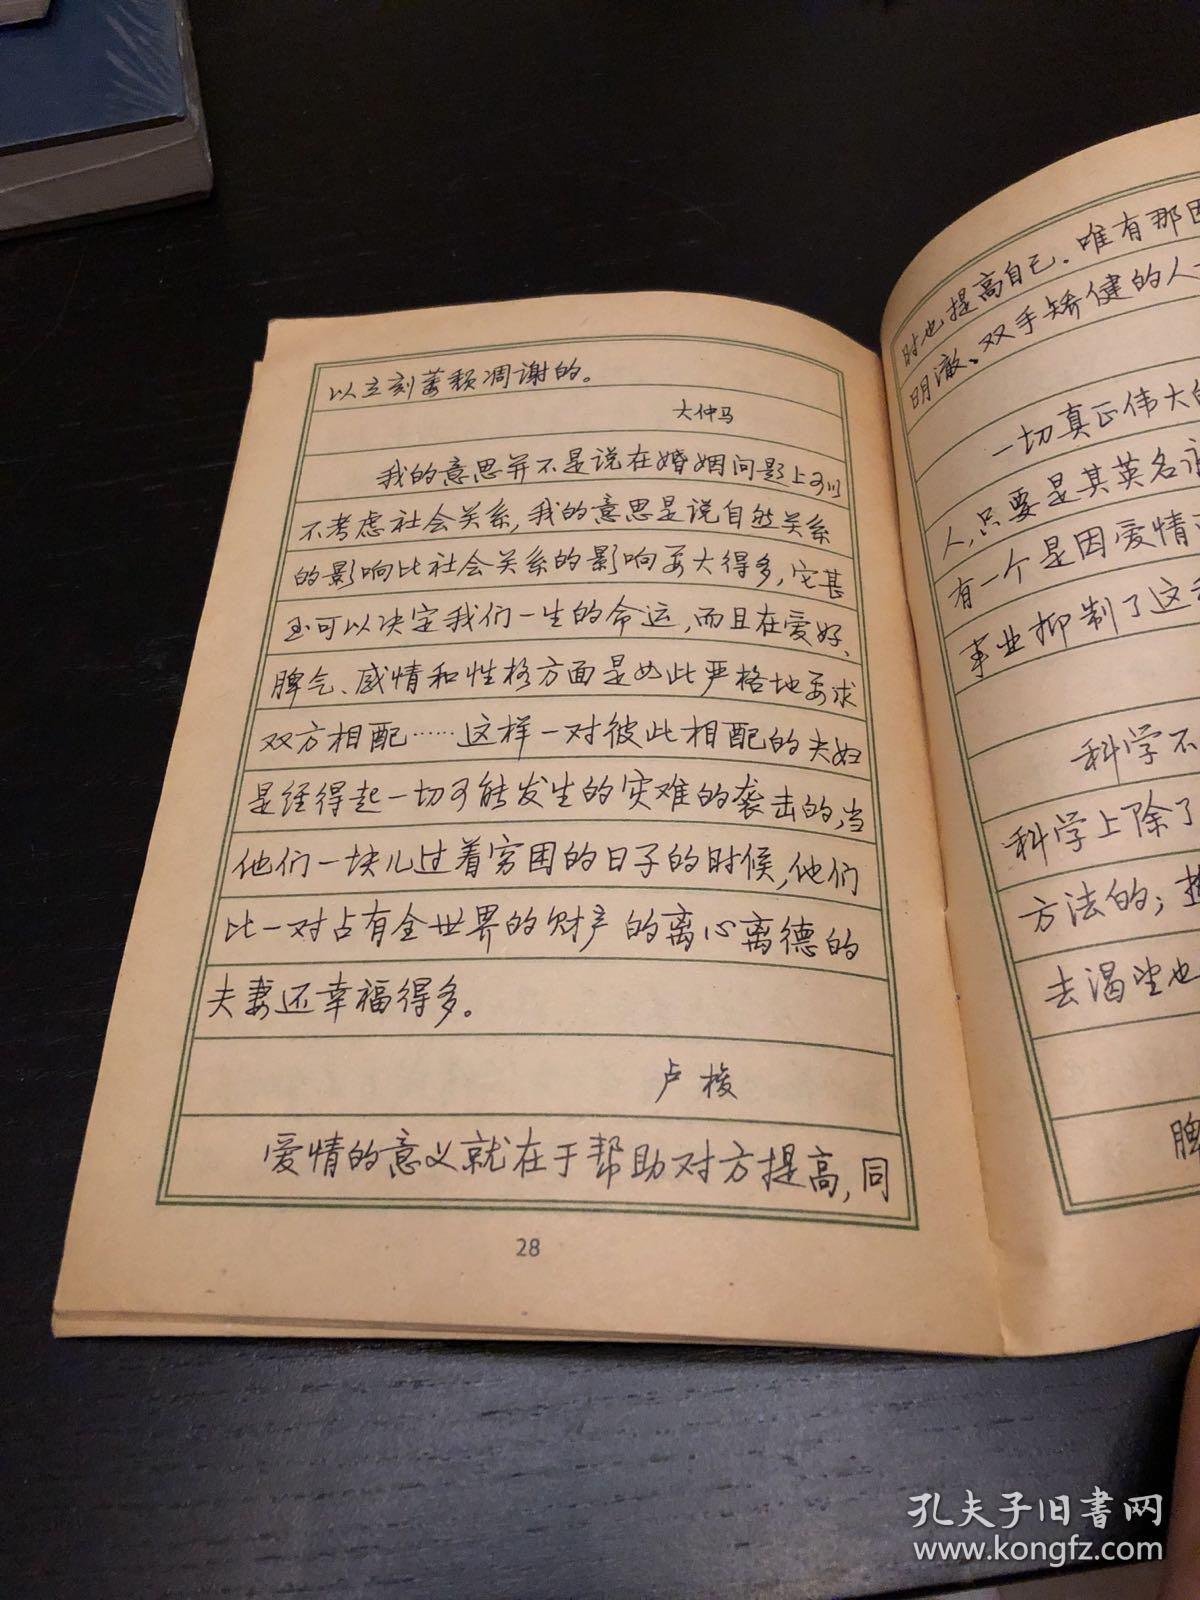 以立刻萎颓凋谢的。
大仲马
我的意思并不是说在婚姻问题上可以
不考虑社会关系,我的意思是说自然关系
的影响比社会关系的影响要大得多,它甚
至可以决定我们一生的命运,而且在爱好、
脾气、感情和性格方面是如此严格地要求
双方相配……这样一对彼此相配的夫妇
是经得起一切可能发生的灾难的袭击的,当
他们一块儿过着穷困的日子的时候,他们
比一对占有全世界的财产的离心离德的
夫妻还幸福得多。
卢梭
爱情的意义就在于帮助对方提高,同
28
时也提高自己.唯有那因
明澈、双手矫健的人
一切真正伟大的
人,只要是其英名
有一个是因爱情
事业抑制了这
科学不
科学上除了
方法的;
去渴望也
脾
孔夫子旧书网
www.kongfz.com